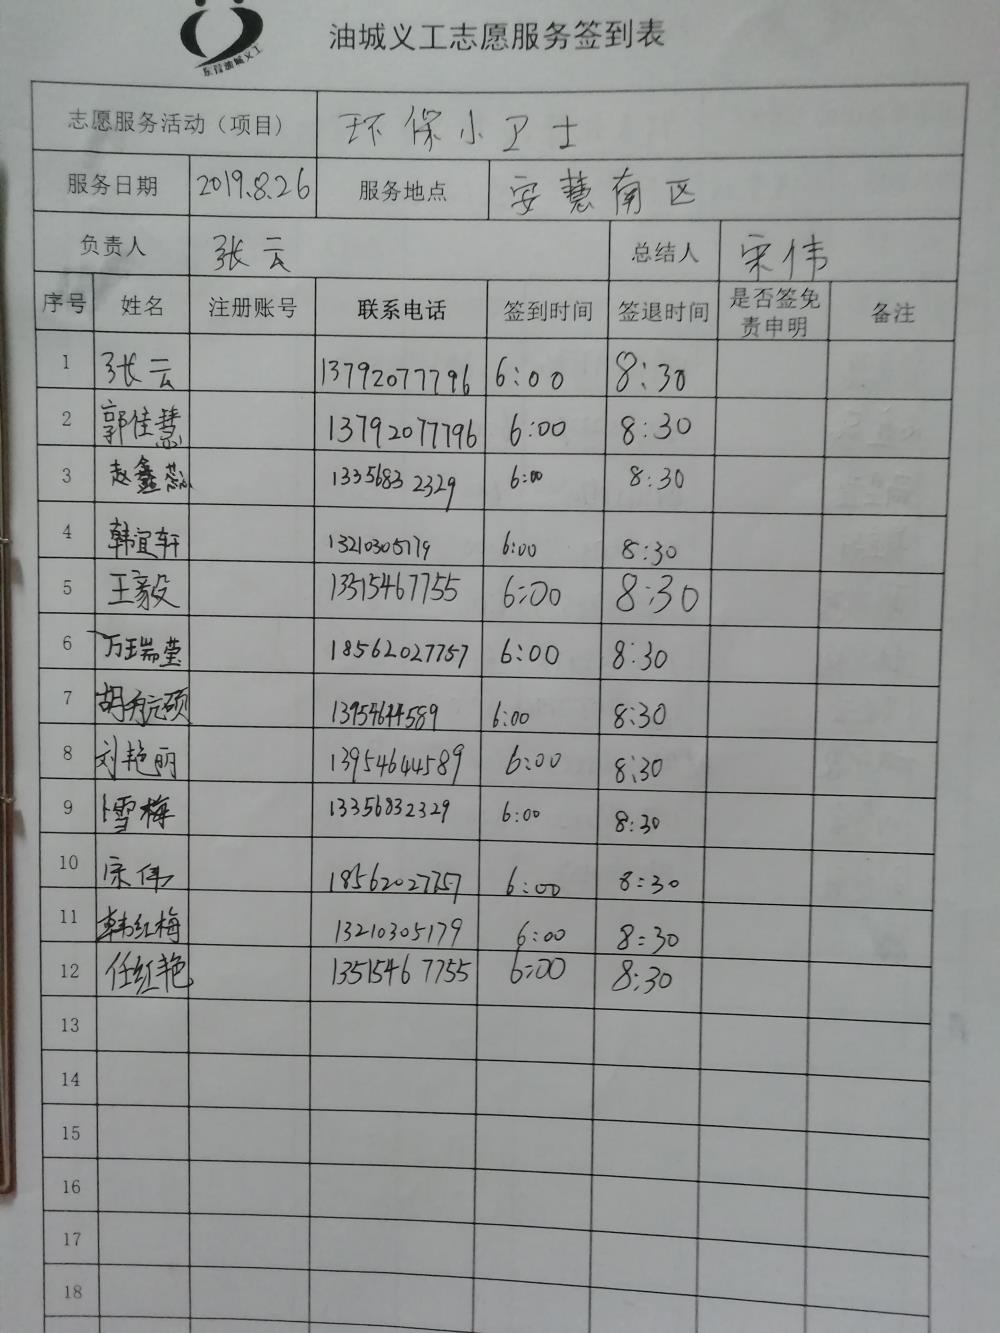 东营油城义工
油城义工志愿服务签到表
志愿服务活动（项目） 环保小卫士
服务日期 2019.8.26 服务地点 安慧南区
负责人 张云 总结人 宋伟
序号 姓名 注册账号 联系电话 签到时间 签退时间 是否签免责申明 备注
1 张云 13792077796 6:00 8:30
2 郭佳慧 13792077796 6:00 8:30
3 赵鑫蕊 13356832329 6:00 8:30
4 韩宜轩 13210305179 6:00 8:30
5 王毅 13515467755 6:00 8:30
6 万瑞莹 18562027757 6:00 8:30
7 胡航硕 13954644589 6:00 8:30
8 刘艳丽 13954644589 6:00 8:30
9 卜雪梅 13356832329 6:00 8:30
10 宋伟 18562027757 6:00 8:30
11 韩红梅 13210305179 6:00 8:30
12 任红艳 13515467755 6:00 8:30
13
14
15
16
17
18